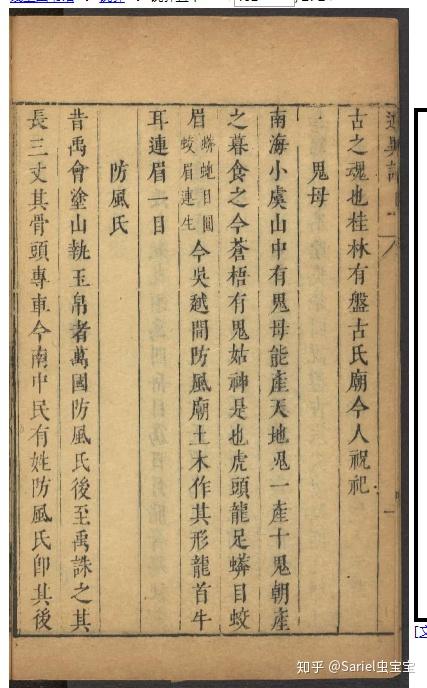 古之魂也桂林有盤古氏廟今人祝祀
鬼母
南海小虞山中有鬼母能產天地鬼一產十鬼朝產
之暮食之今蒼梧有鬼姑神是也虎頭龍足蟒目蛟
眉蟒蛇目圓蛟眉連生今吳越間防風廟土木作其形龍首牛
耳連眉一目
防風氏
昔禹會塗山執玉帛者萬國防風氏後至禹誅之其
長三丈其骨頭專車今南中民有姓防風氏即其後
知乎 @Sariel虫宝宝